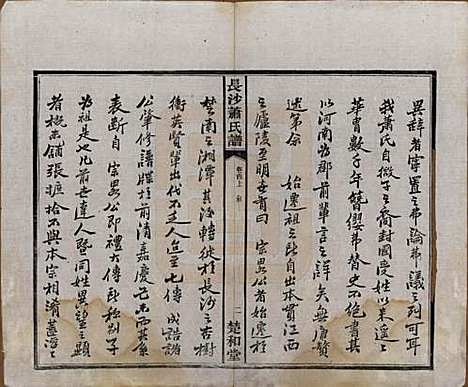 異辭者寧置之弗論弗議之列可耳
我蕭氏自微子之裔封國受姓以來遙遙
華胄數千年簪纓弗替史不絕書
以河南為郡前輩言之詳矣無庸贅
述第余 始遷祖之所自出本江西
之廬陵至明安者曰 宗 公始遷於
長沙蕭氏譜
卷首上 序
二 楚和堂
楚南之湘潭其後轉徙於長沙之古樹
衝英賢輩出代不乏人迨至七傳 成誥諸
公肇修譜牒於前清嘉慶己未而賞系
表斷自 宗 公即禮大傳所稱別子
為祖是也凡前世達人暨同姓異望之顯
者概不鋪張摭拾不與本宗相淆蓋海